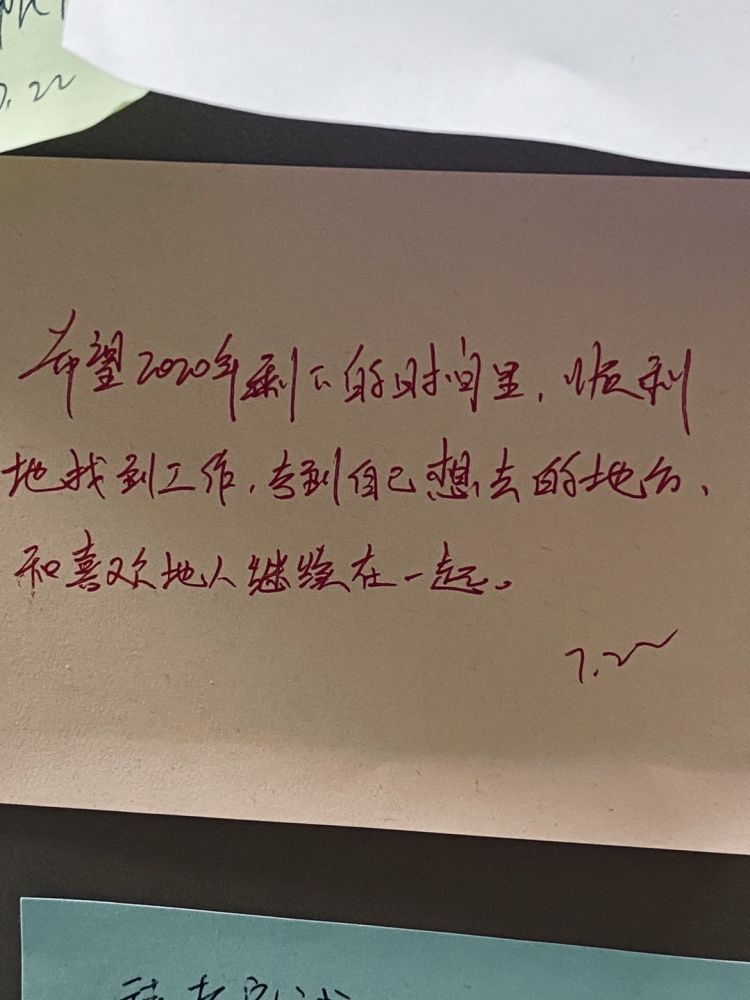 7.22
希望2020年剩下的时间里，顺利
地找到工作，考到自己想去的地方、
和喜欢地人继续在一起。
7.22